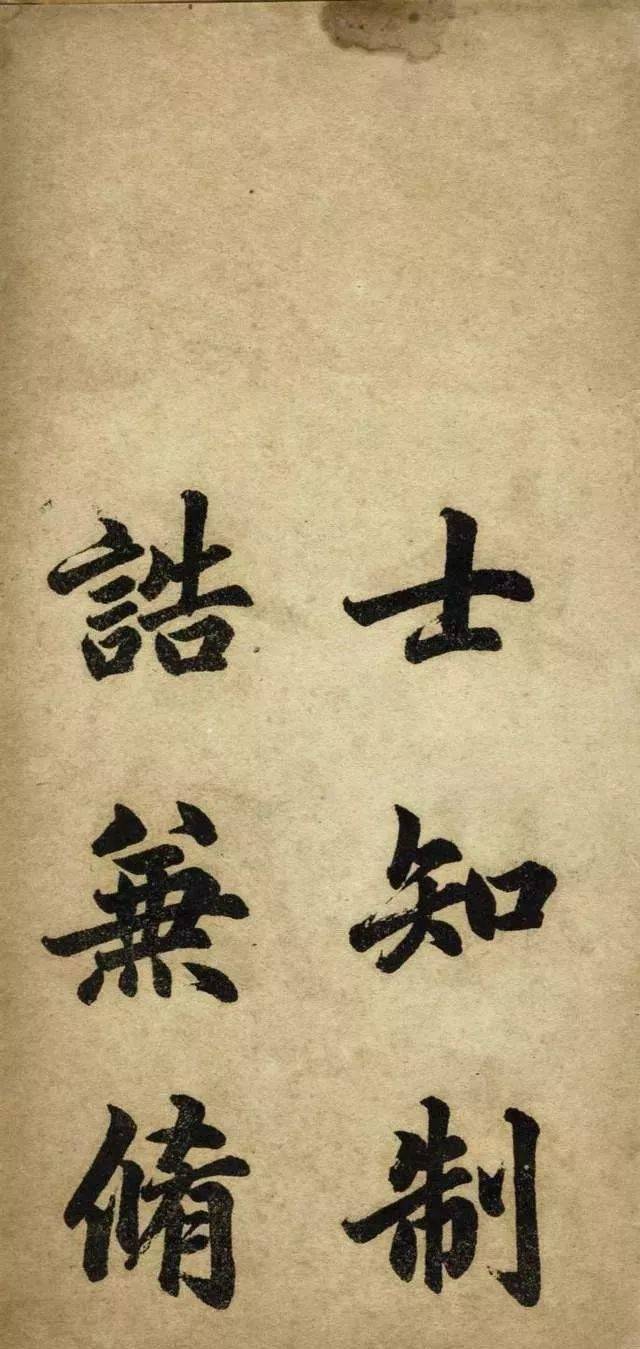 士知制
誥兼脩